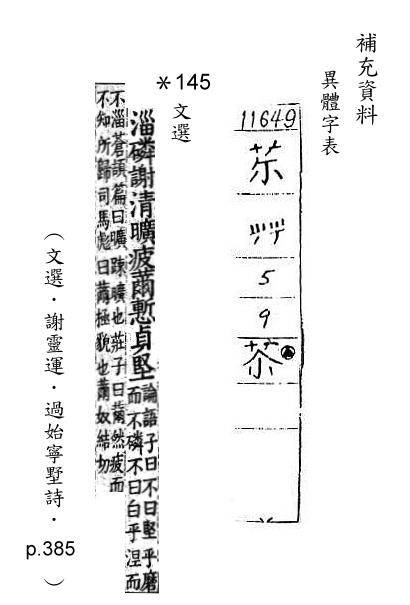 補充資料
異體字表
11649
5
9
苶
＊145
文選
淄磷謝清曠疲薾慙貞堅
論語子曰不曰堅乎磨
而不磷不曰白乎涅而
不淄蒼頡篇曰曠踈曠也莊子曰薾然疲而
不知所歸司馬彪曰薾極貌也薾奴結切
（文選．謝靈運．過始寧墅詩．p.385）